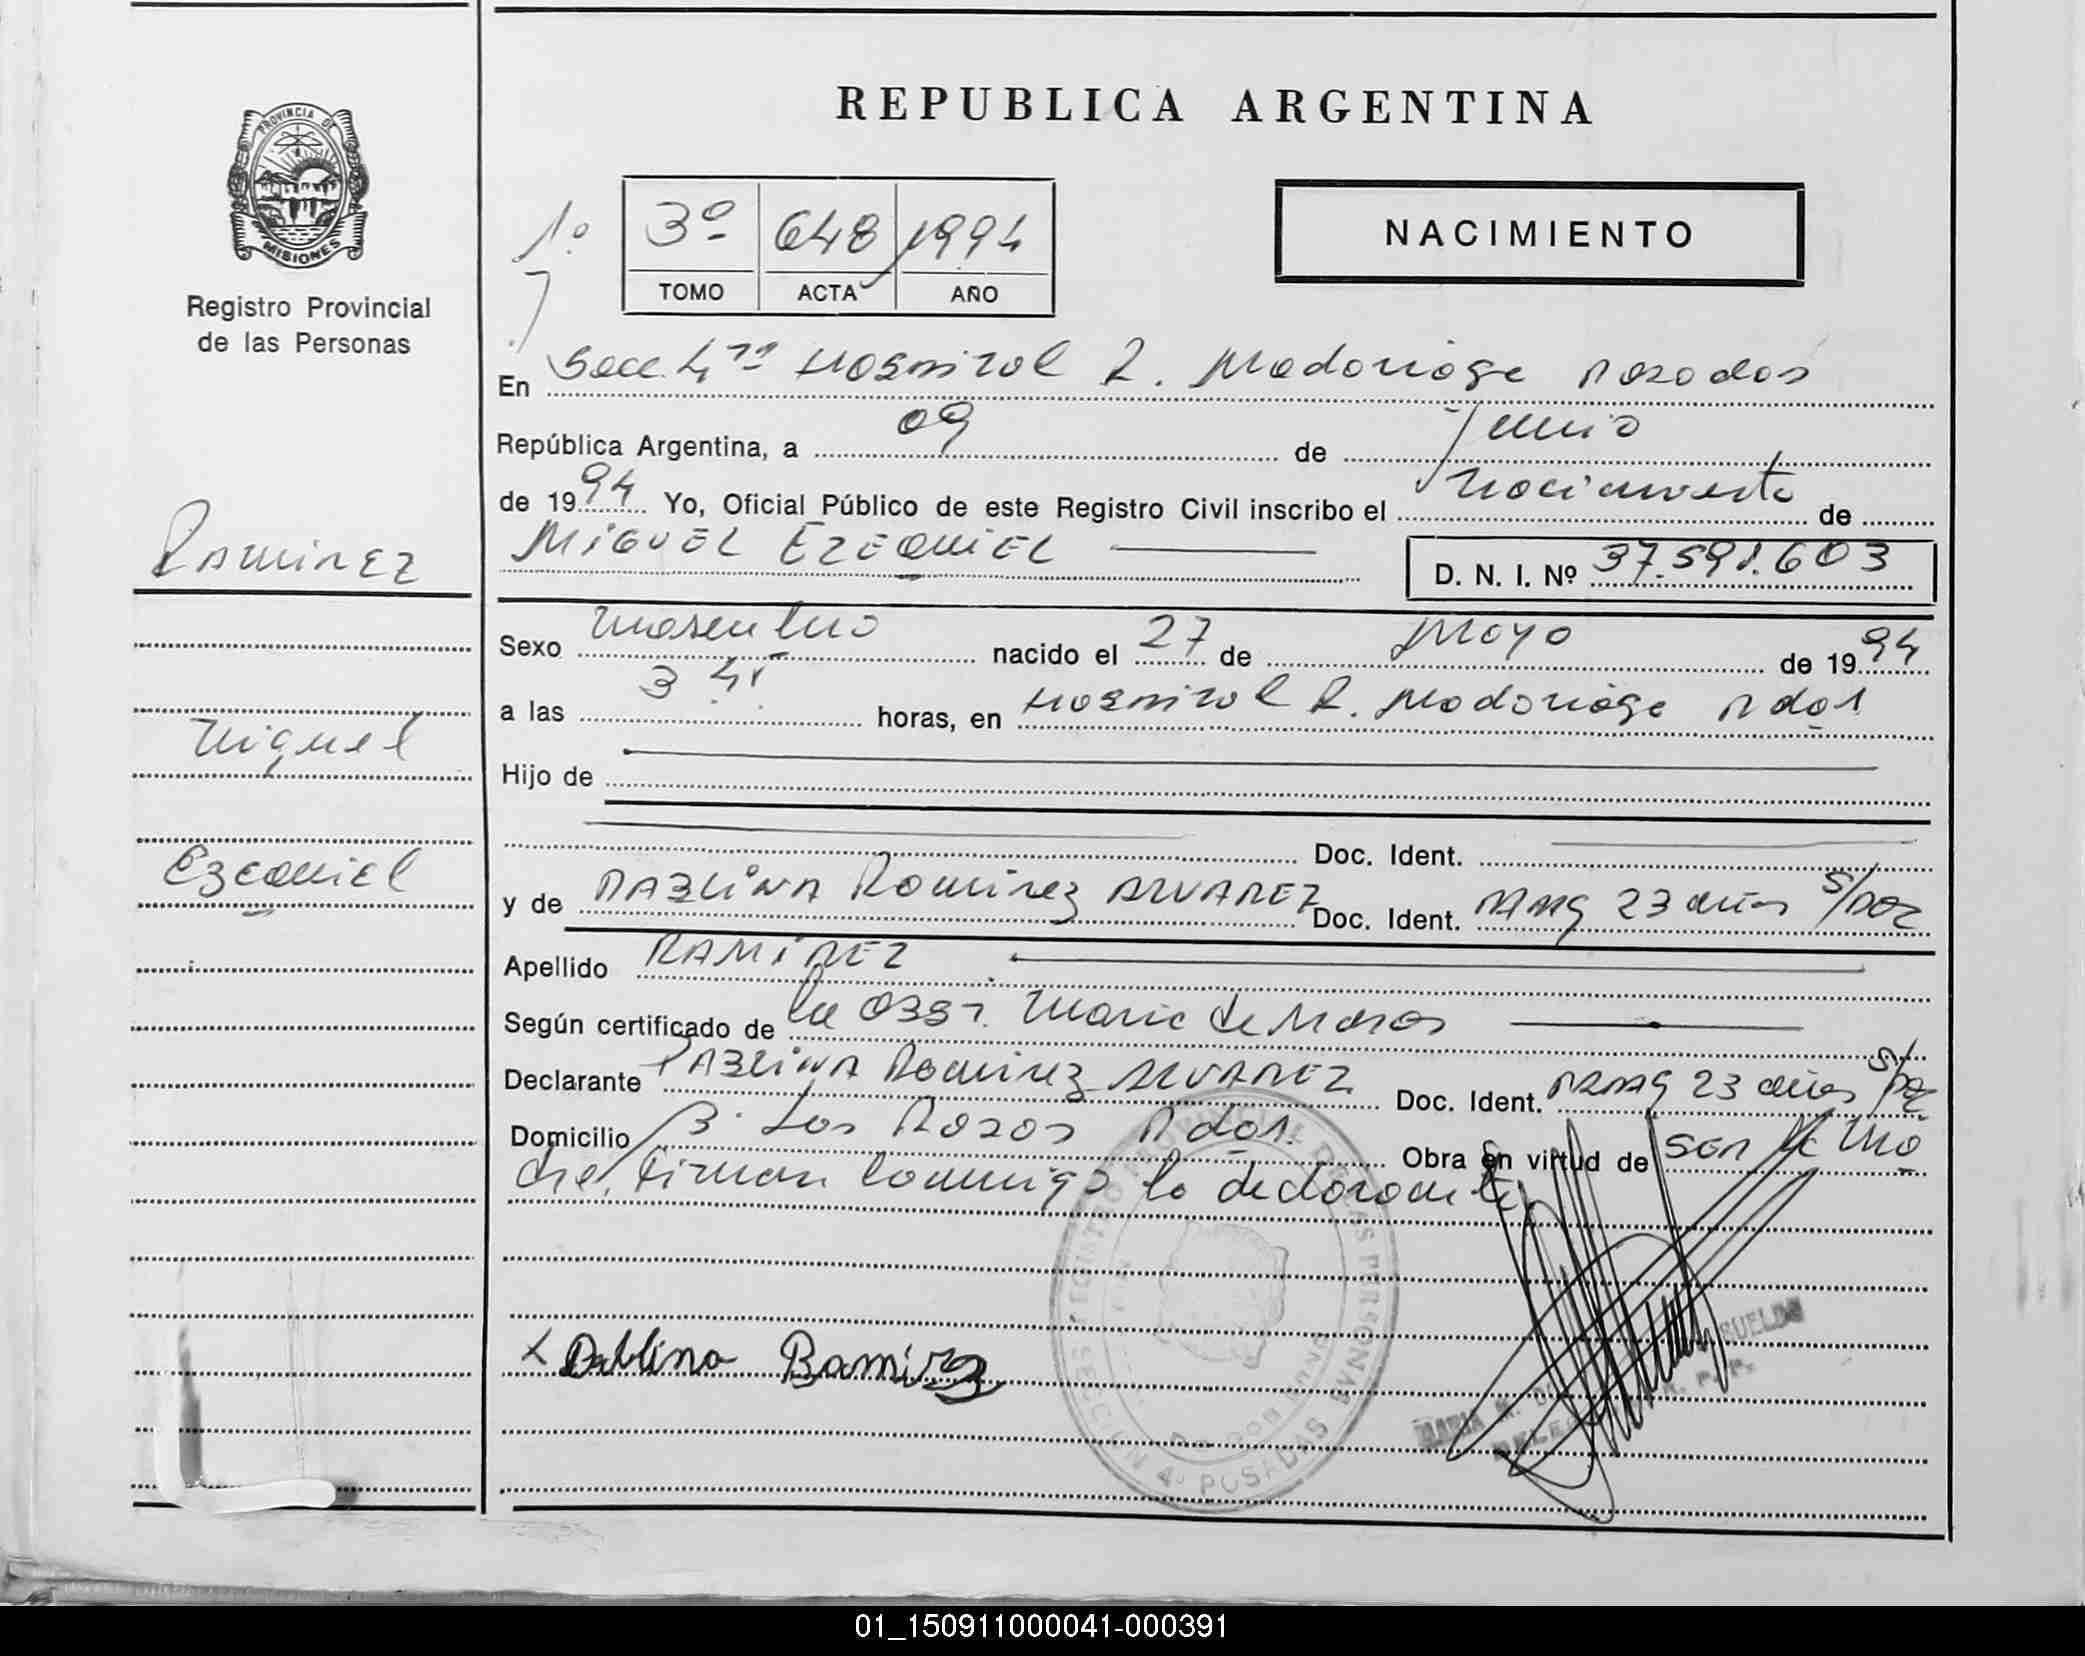 PROVINCIA DE
MISIONES
Registro Provincial
de las Personas
REPUBLICA ARGENTINA
NACIMIENTO
1º 3º 648 1994
TOMO ACTA AÑO
En Secc. 4ta Hospital R. Madariaga Posadas
República Argentina, a 09 de Junio
de 1994 Yo, Oficial Público de este Registro Civil inscribo el Nacimiento de
MIGUEL EZEQUIEL D. N. I. Nº 37.591.603
Ramirez
Sexo Masculino nacido el 27 de Mayo de 1994
a las 3 45 horas, en Hospital R. Madariaga Pdas.
Miguel
Hijo de
Doc. Ident.
Ezequiel
y de PABLINA Ramirez ALVAREZ Doc. Ident. 23 años S/Doc
Apellido RAMIREZ
Según certificado de la Obst. Maria de
Declarante PABLINA Ramirez ALVAREZ Doc. Ident. 23 años S/Doc
Domicilio B. Las Rosas Pdas. Obra en virtud de ser la ma
dre. Firman conmigo la declarante.
X Pablina Ramirez
REGISTRO PROVINCIAL DE LAS PERSONAS
SECCION 4ª POSADAS
MARIA